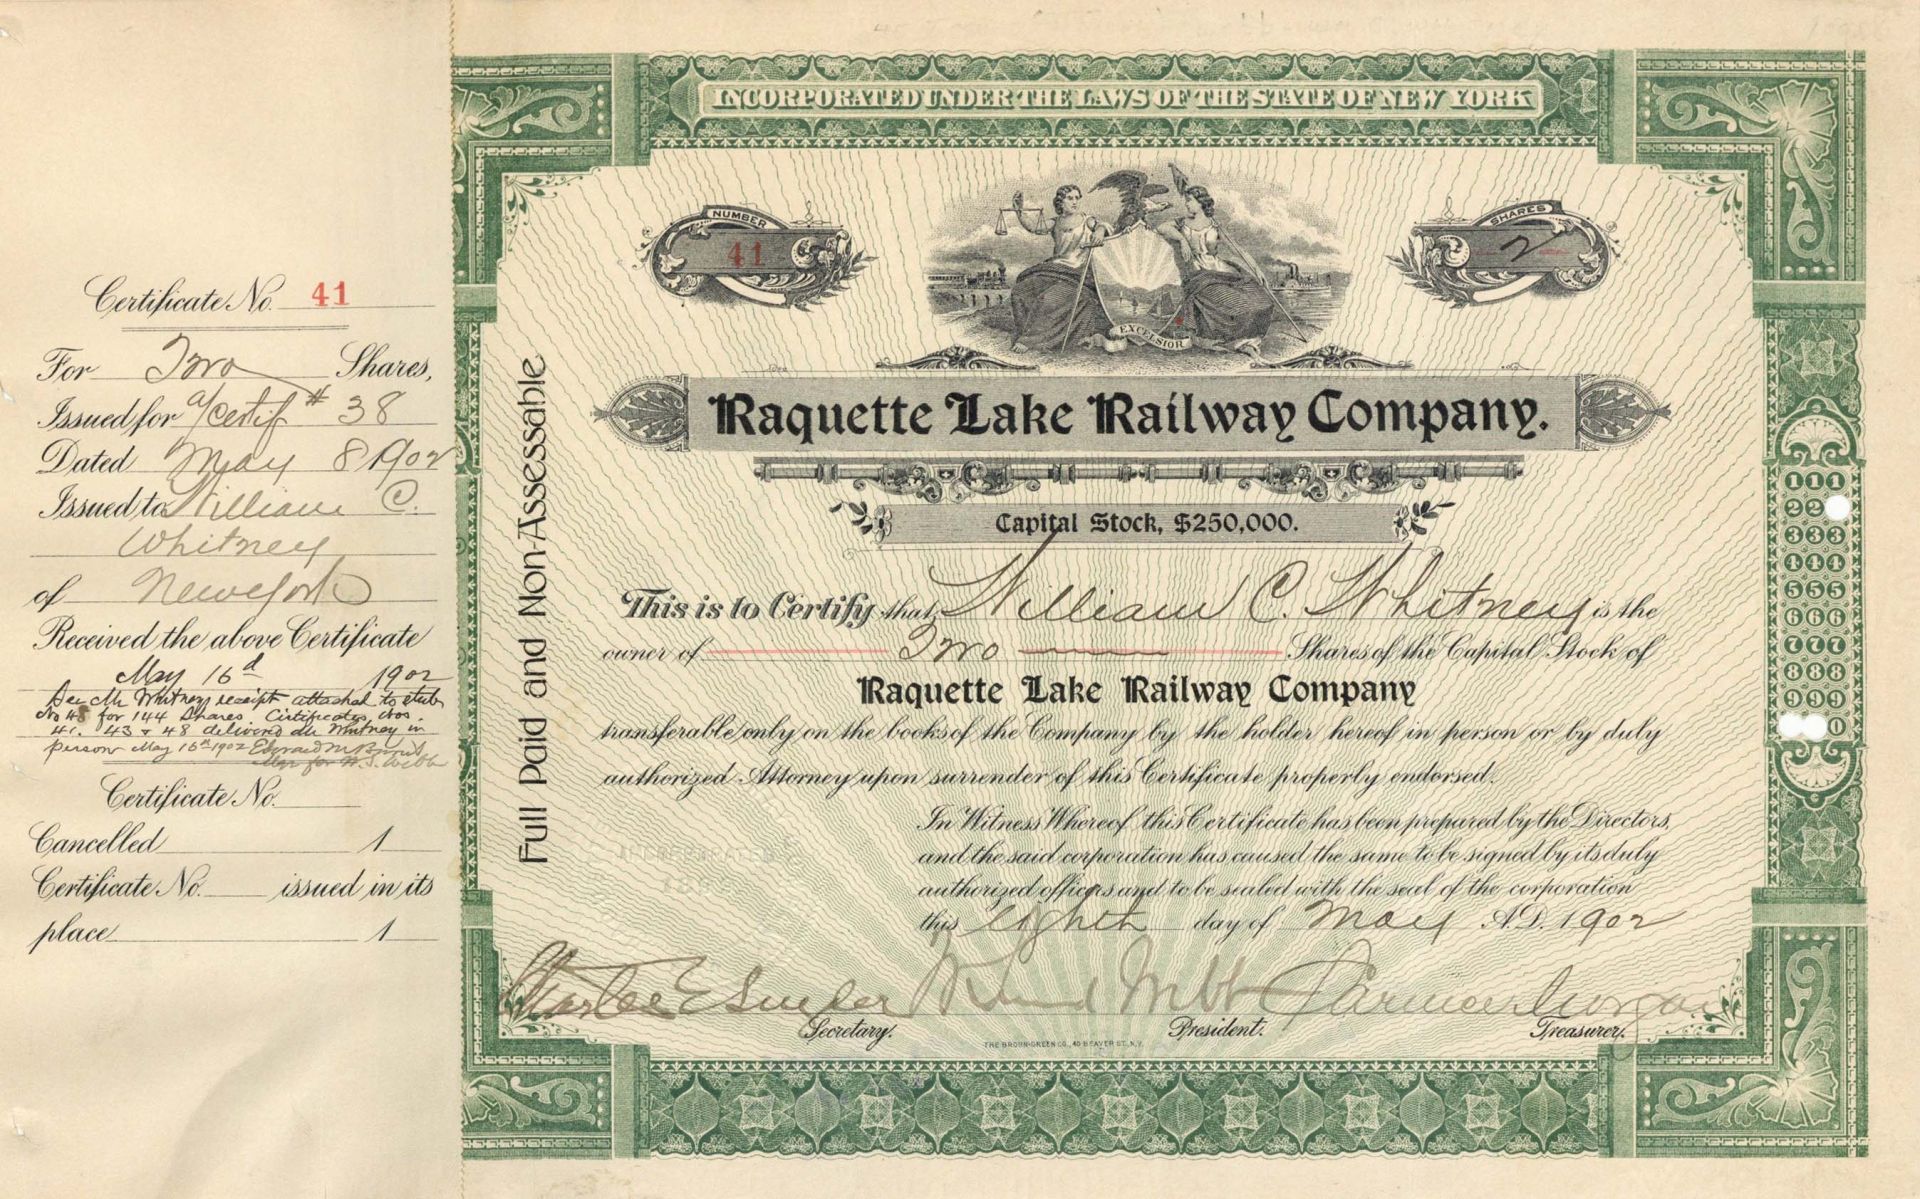 Certificate No. 41
For Two Shares,
Issued for a/certif # 38
Dated May 8 1902
Issued to William C.
Whitney
of New York
Received the above Certificate
May 16th 1902
See Mr Whitneys receipt attached to stub
No 48 for 144 Shares. Certificates Nos.
41. 43 & 48 delivered Mr Whitney in
person May 16th 1902
for W. S. Webb
Certificate No.
Cancelled 1
Certificate No. issued in its
place 1
INCORPORATED UNDER THE LAWS OF THE STATE OF NEW YORK
NUMBER
41
SHARES
2
EXCELSIOR
Raquette Lake Railway Company.
Capital Stock, $250,000.
Full Paid and Non-Assessable
This is to Certify that William C. Whitney is the
owner of Two Shares of the Capital Stock of
Raquette Lake Railway Company
transferable only on the books of the Company by the holder hereof in person or by duly
authorized Attorney upon surrender of this Certificate properly endorsed.
In Witness Whereof this Certificate has been prepared by the Directors,
and the said corporation has caused the same to be signed by its duly
authorized officers and to be sealed with the seal of the corporation
this eighth day of May A.D. 1902
Charles E Snyder
Secretary.
President.
Treasurer.
THE BROUN-GREEN CO., 40 BEAVER ST. N.Y.
111
22
333
444
555
666
777
888
999
0